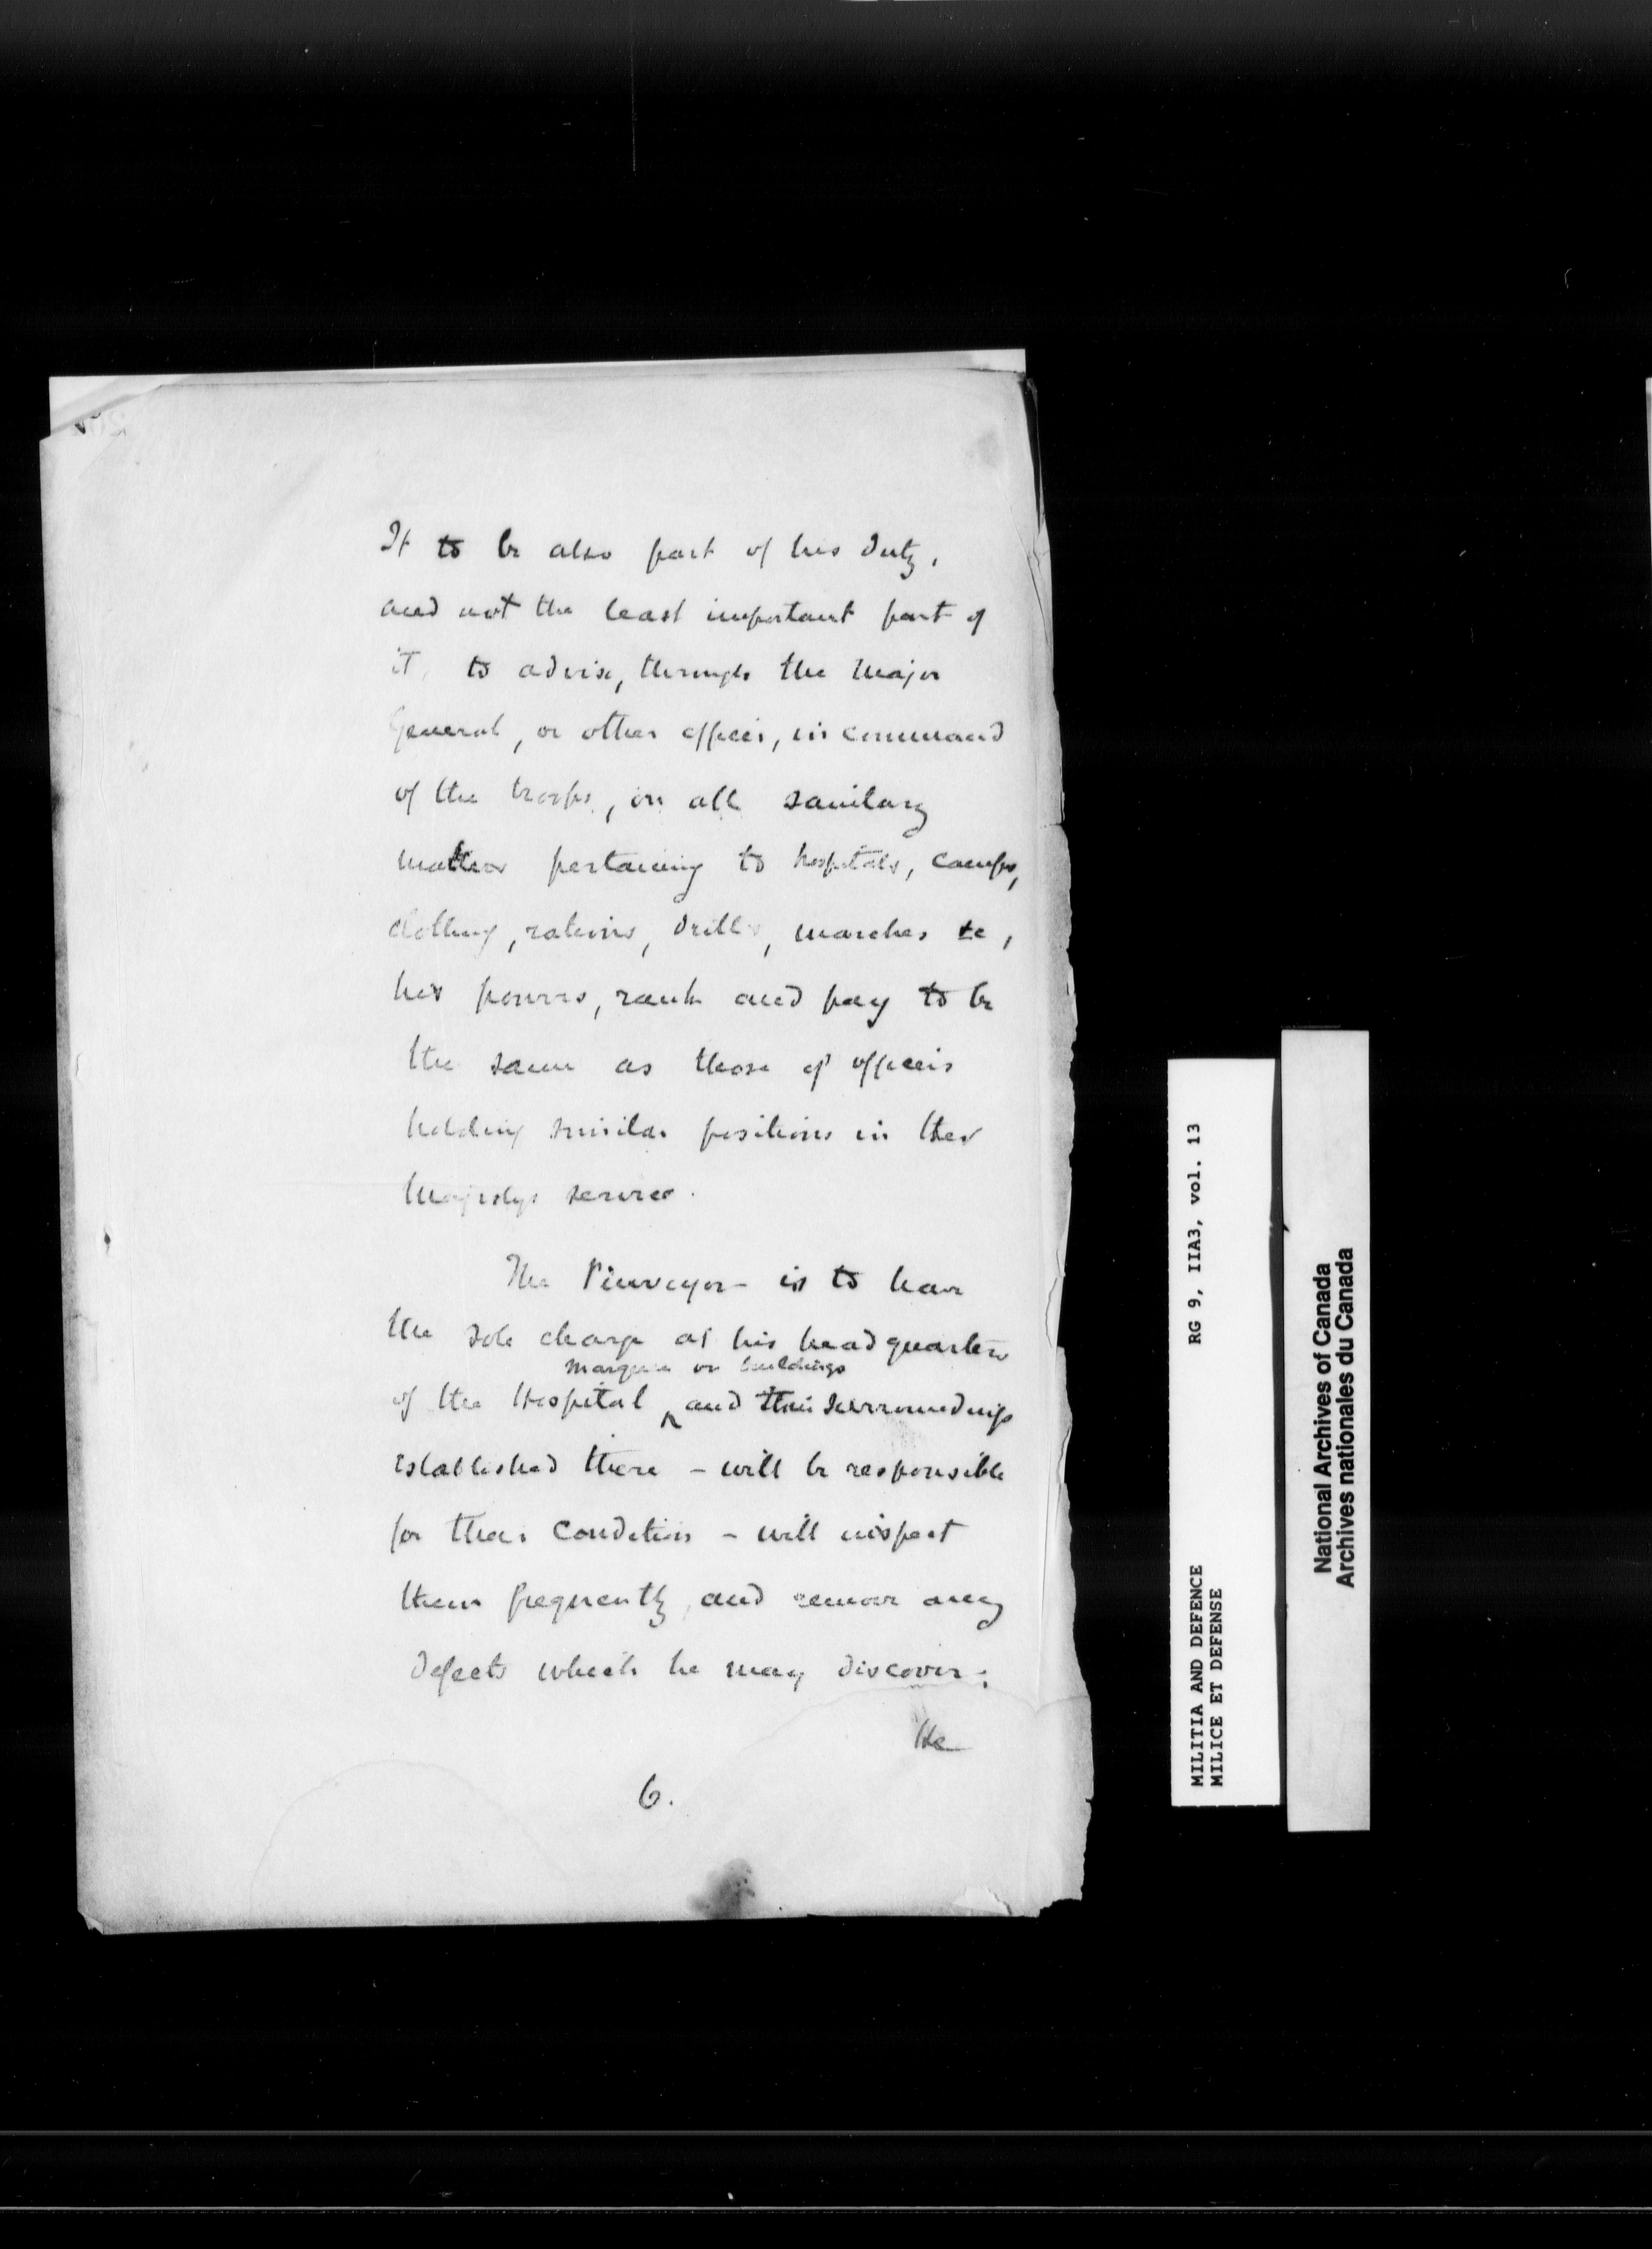 It to be also part of his duty,
and not the least important part of
it, to advise, through the Major
General, or other officer, in command
of the troops, on all sanitary
matters pertaining to hospitals, camps,
clothing, rations, drills, marches &c,
his powers, rank and pay to be
the same as those of officers
holding similar positions in Her
Majestys service.
The Purveyor - is to have
the sole charge at his headquarters
marquees or buildings
of the Hospital ‸ and their surroundings
established there - will be responsible
for their condition - will inspect
them frequently, and remove any
defects which he may discover:
He
6.
RG 9, IIA3, vol. 13
MILITIA AND DEFENCE
MILICE ET DEFENSE
National Archives of Canada
Archives nationales du Canada